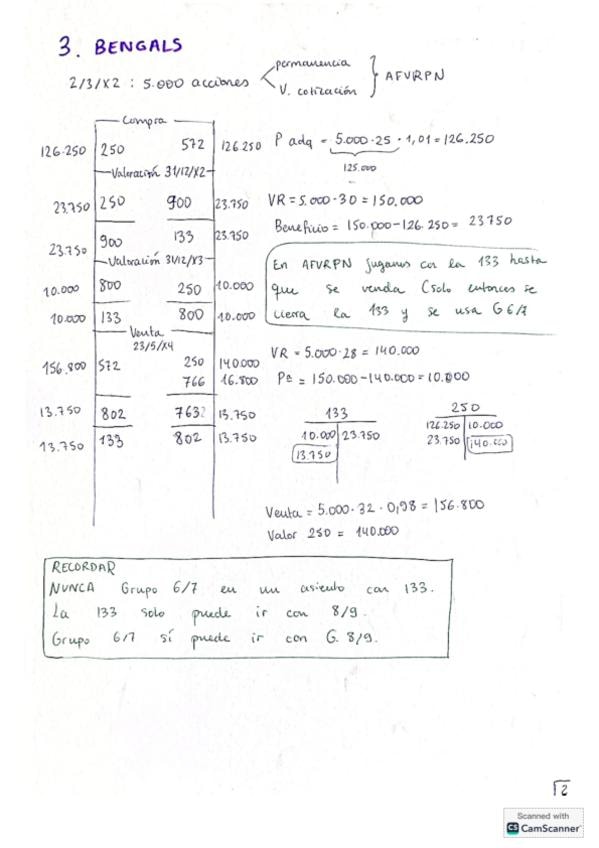 3. BENGALS
2/3/X2 : 5.000 acciones
permanencia
V. cotización
AFVRPN
Compra
126.250 250 572 126.250
P adq = 5.000·25 · 1,01 = 126.250
125.000
Valoración 31/12/X2
23.750 250 900 23.750
VR = 5.000·30 = 150.000
Beneficio = 150.000-126.250 = 23750
23.750 900 133 23.750
Valoración 31/12/X3
10.000 800 250 10.000
10.000 133 800 10.000
En AFVRPN jugamos con la 133 hasta
que se venda (solo entonces se
cierra la 133 y se usa G 6/7
Venta
23/5/X4
VR = 5.000·28 = 140.000
156.800 572 250 140.000
766 16.800
Pª = 150.000-140.000 = 10.000
13.750 802 7632 13.750
13.750 133 802 13.750
133
10.000 23.750
13.750
250
126.250 10.000
23.750 140.000
Venta = 5.000·32·0,98 = 156.800
Valor 250 = 140.000
RECORDAR
NUNCA Grupo 6/7 en un asiento con 133.
La 133 solo puede ir con 8/9.
Grupo 6/7 sí puede ir con G. 8/9.
2
Scanned with
CS CamScanner